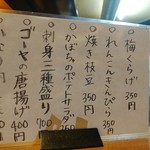 梅くらげ 350円
れんこんきんぴら 350円
焼き枝豆 350円
かぼちゃのポテトサラダ
刺身三種盛り 700
ゴーヤの唐揚げ 400円